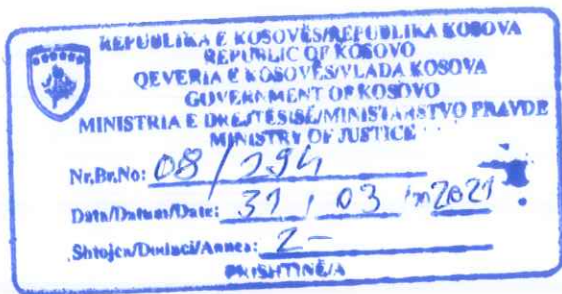 REPUBLIKA E KOSOVËS/REPUBLIKA KOSOVA
REPUBLIC OF KOSOVO
QEVERIA E KOSOVËS/VLADA KOSOVA
GOVERNMENT OF KOSOVO
MINISTRIA E DREJTËSISË/MINISTARSTVO PRAVDE
MINISTRY OF JUSTICE
Nr.Br.No: 08/294
Data/Datum/Date: 31 / 03 / 2021
Shtojca/Dodaci/Annex: 2-
PRISHTINË/A